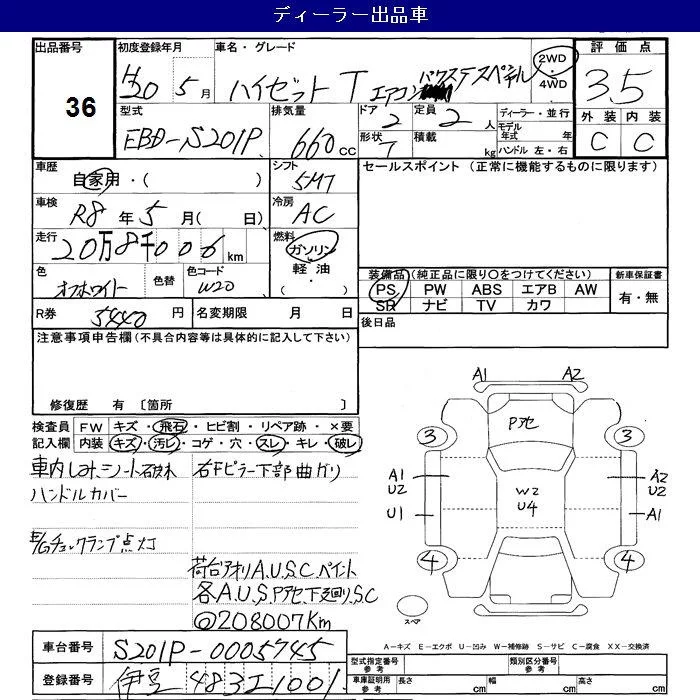 ディーラー出品車
出品番号
36
初度登録年月
H20 5月
車名・グレード
ハイゼット T エアコン パワステスペシャル
2WD・4WD
評価点
3.5
外装 内装
C C
型式
EBD-S201P
排気量
660cc
ドア
2
形状
T
定員
2人
積載
kg
ディーラー・並行
モデル年式 年
ハンドル 左・右
車歴
自家用・( )
シフト
5MT
セールスポイント (正常に機能するものに限ります)
車検
R8年5月( 日)
冷房
AC
走行
20万8千006km
燃料
ガソリン
軽油
・( )
色
オフホワイト
色替
色コード
W20
装備品(純正品に限り○をつけてください)
PS PW ABS エアB AW
SR ナビ TV カワ
新車保証書
有・無
R券 5440円
名変期限 月 日
後日品
注意事項申告欄(不具合内容等は具体的に記入して下さい)
修復歴 有〔箇所 〕
検査員記入欄
FW キズ・飛石・ヒビ割・リペア跡・×要
内装 キズ・汚レ・コゲ・穴・スレ・キレ・破レ
車内しみ シート破れ
ハンドルカバー
E/Gチェックランプ点灯
右Fピラー下部曲ガリ
荷台アオリA.U.S.C ペイント
各A.U.S.Pアセ下廻りS.C
◎208007Km
A1 A2
Pアセ
3 3
A1 U2
W2 U4
A2 U2
U1
A1
4 4
スペア
A-キズ E-エクボ U-凹み W-補修跡 S-サビ C-腐食 XX-交換済
車台番号
S201P-0005745
登録番号
伊豆 483 エ 1001
型式指定番号 参考
類別区分番号 参考
車庫証明用 参考
長さ cm 幅 cm 高さ cm